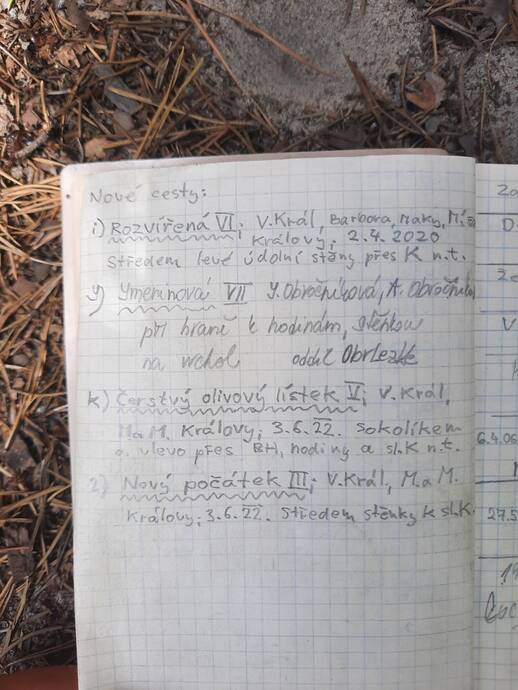 Nové cesty:
i) Rozvířená VI; V. Král, Barbora, Maky, M.
Královy; 2.4.2020
Středem levé údolní stěny přes K n.t.
y) Ymeninová VII Y. Obročníková, A. Obročník
při hraně k hodinám, stěnkou
na vrchol oddíl Obrlezke
k) Čerstvý olivový lístek V; V. Král,
M a M. Královy; 3.6.22. Sokolíkem
a vlevo přes BH, hodiny a sl.K n.t.
2) Nový počátek III; V. Král, M. a M.
Královy; 3.6.22. Středem stěnky k sl.K.
Za
D
Že
V
6.4.06
27.5